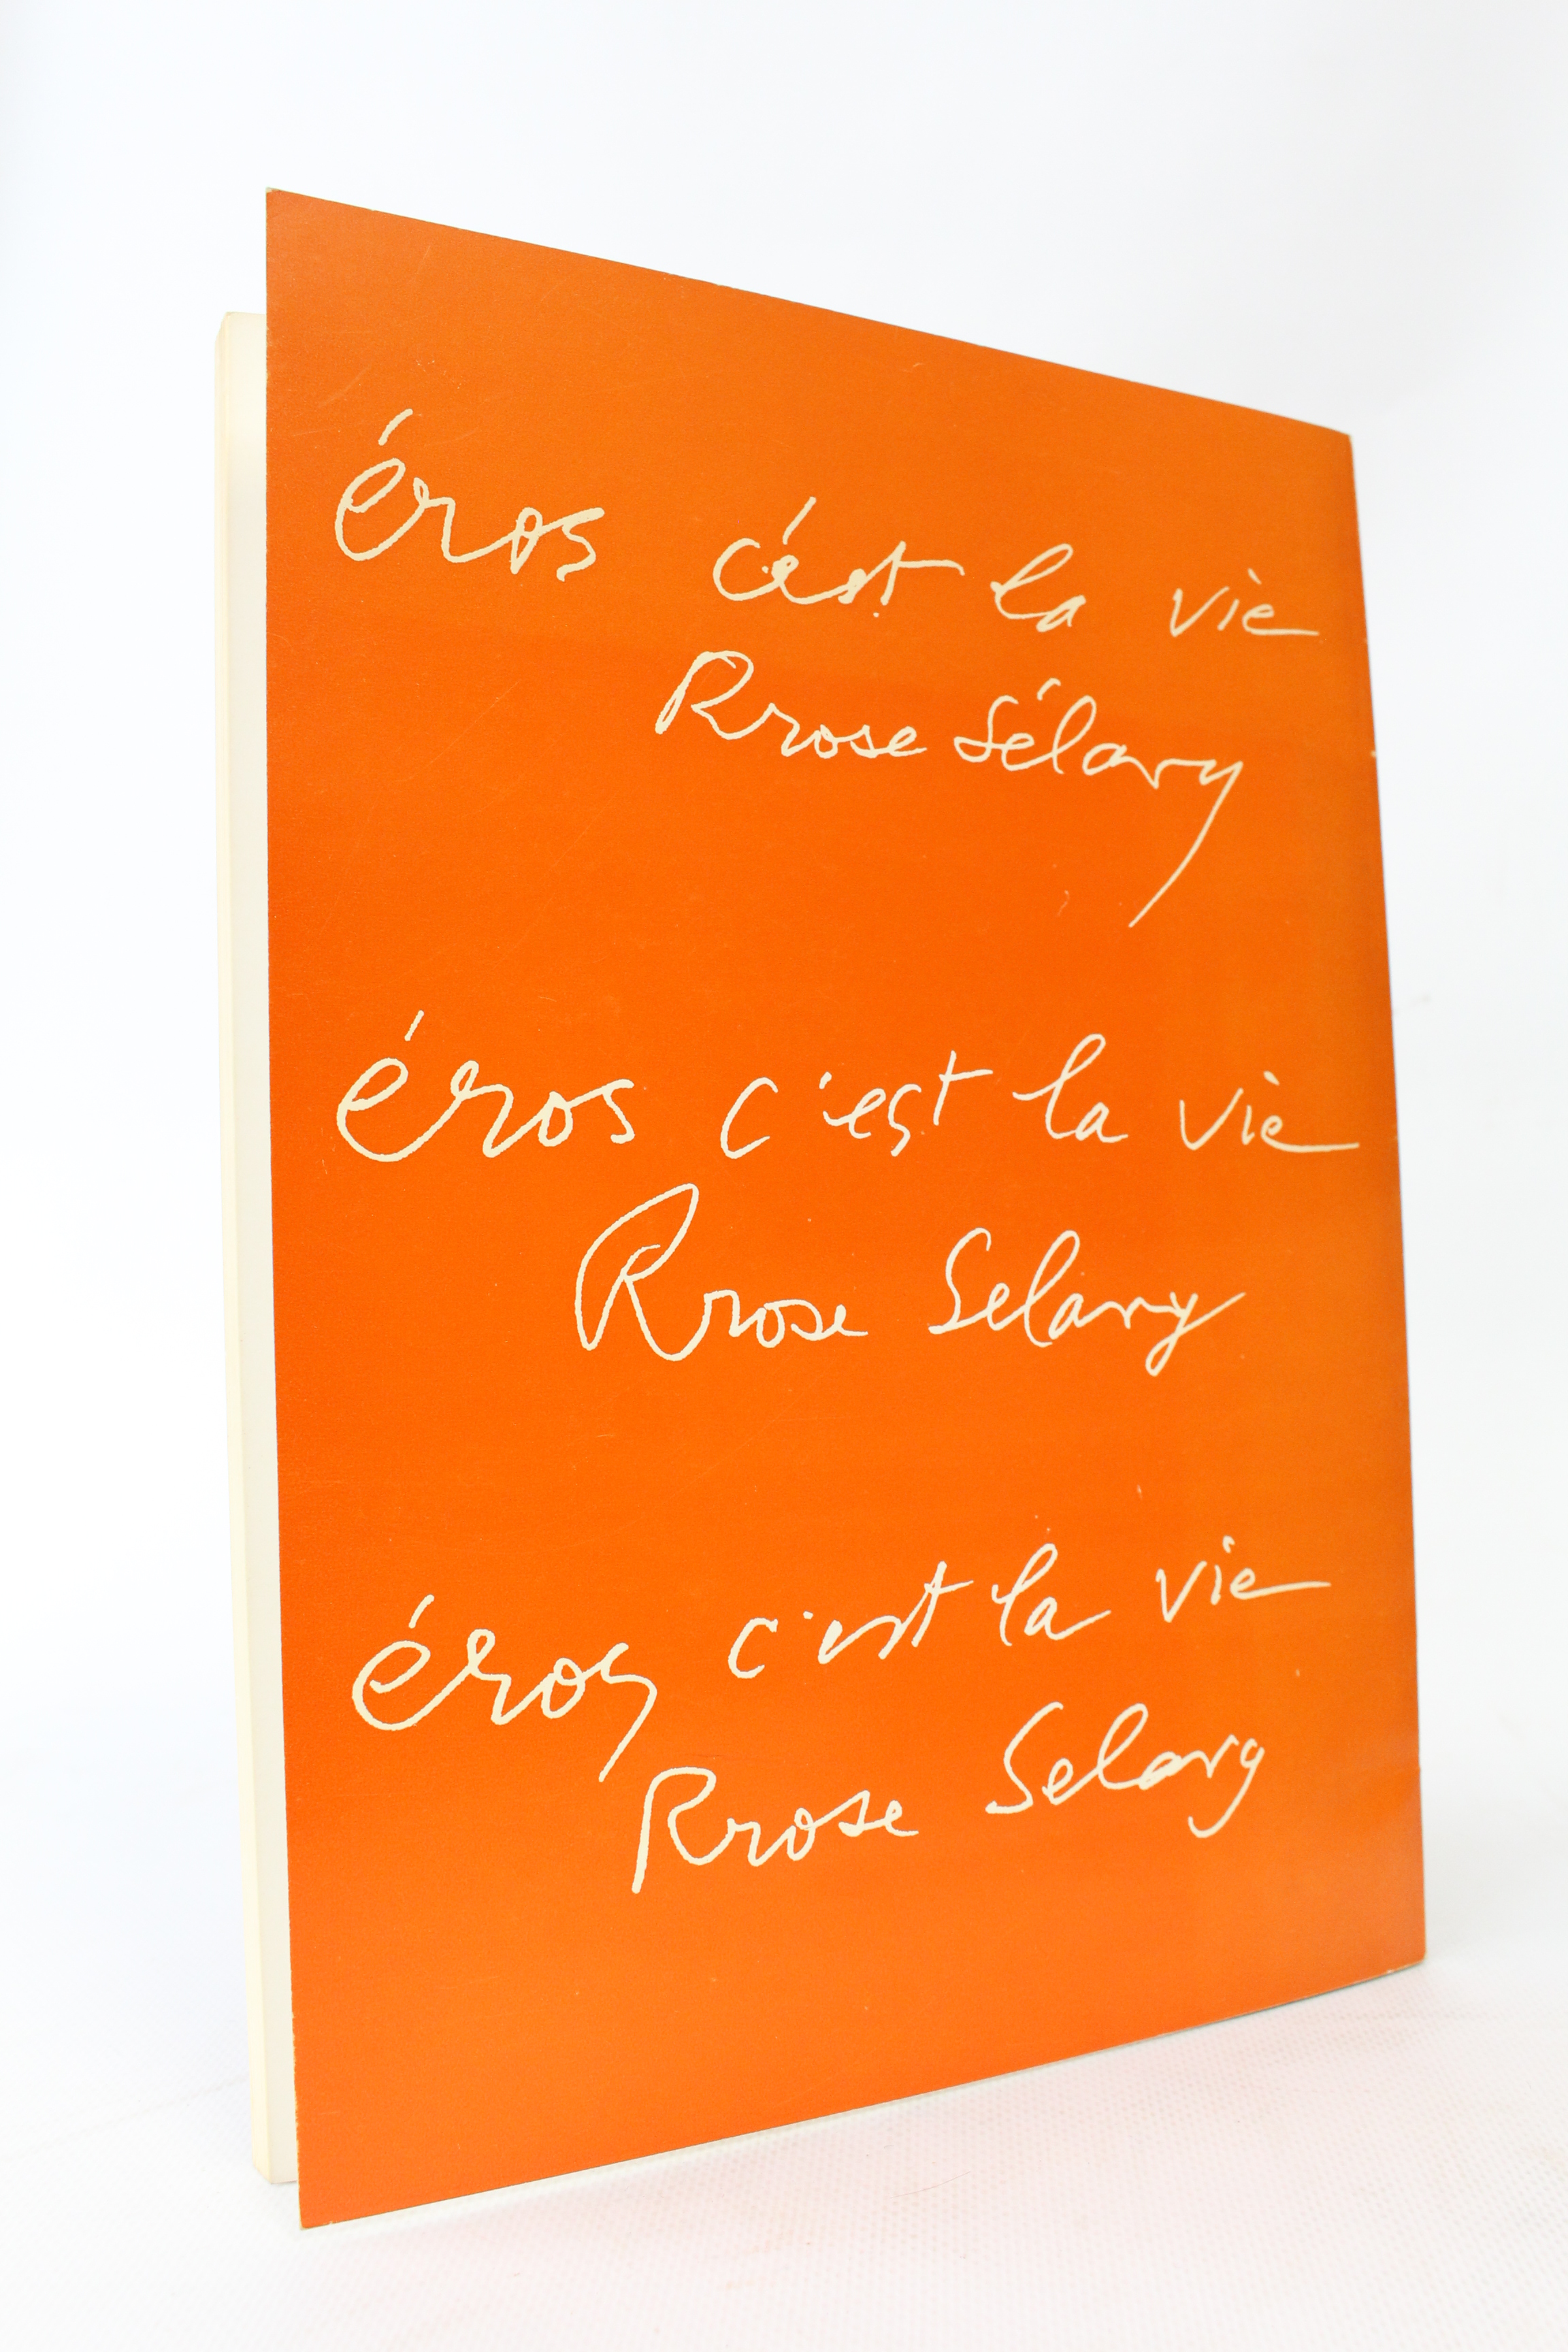 éros c'ést la vie
Rrose Sélavy
éros c'est la vie
Rrose Selavy
éros c'est la vie
Rrose Selavy